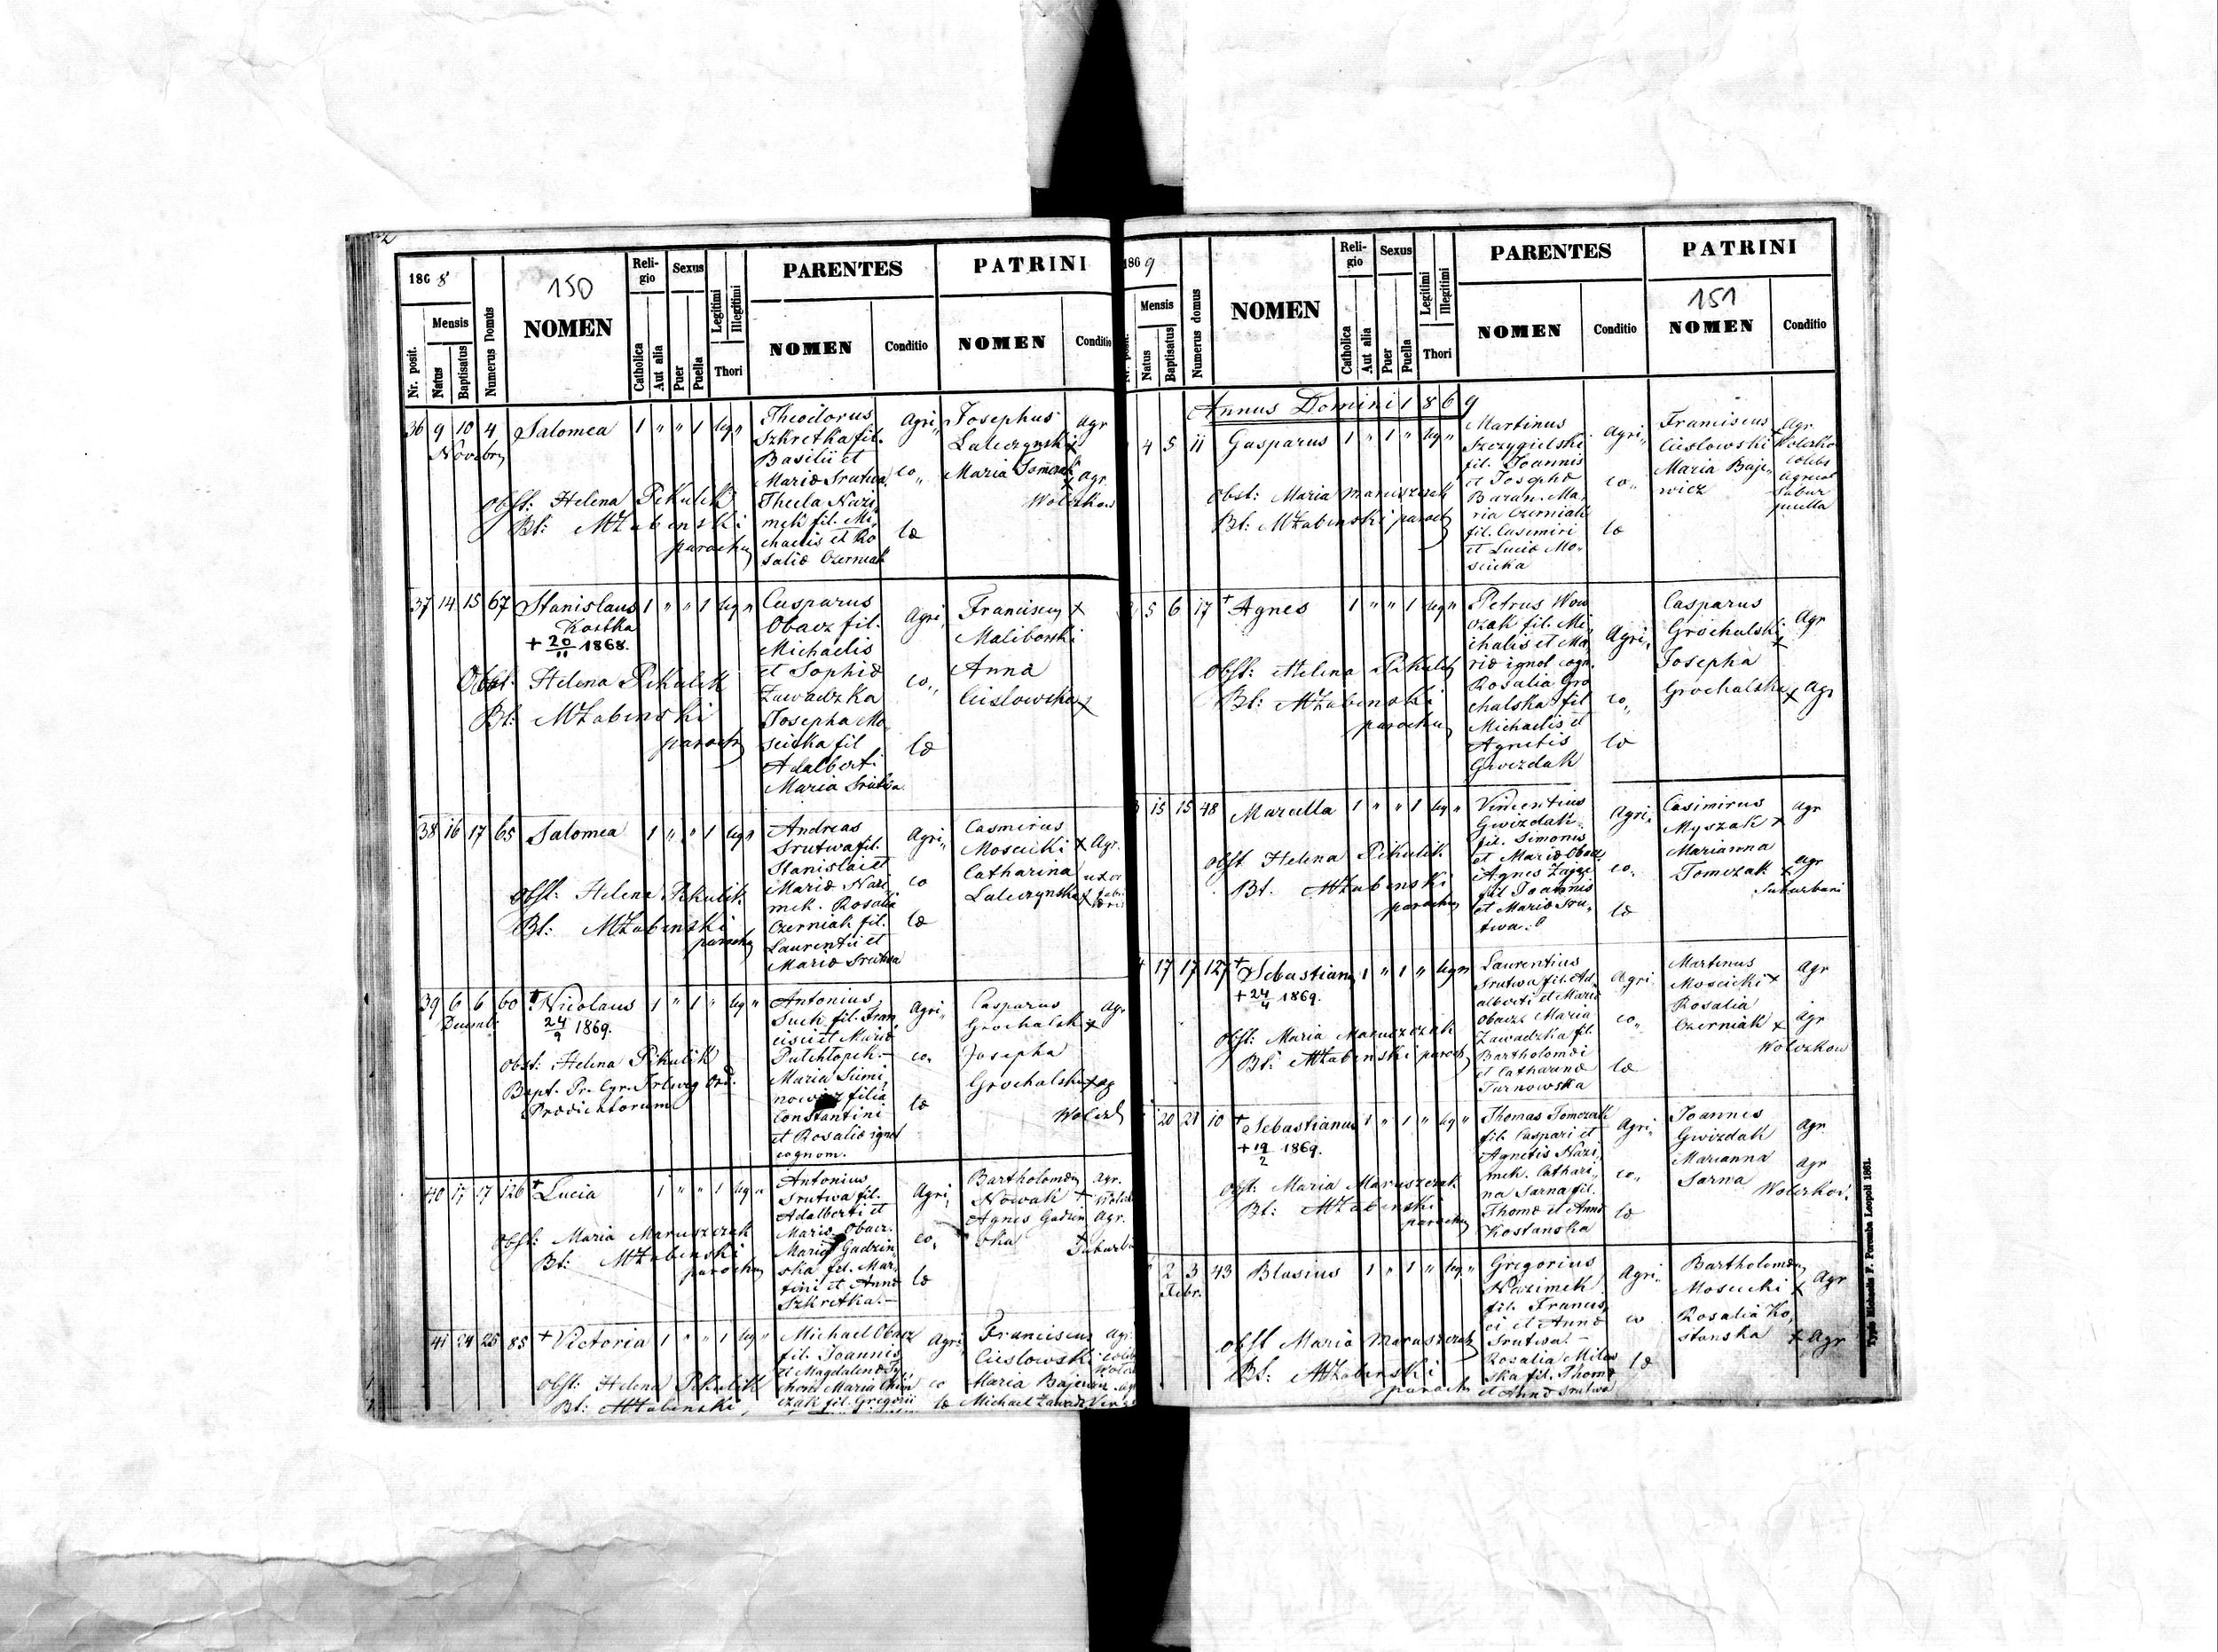 1868
150
Nr. posit.
Mensis
Natus
Baptisatus
Numerus Domus
NOMEN
Religio
Catholica
Aut alia
Sexus
Puer
Puella
Legitimi
Illegitimi
Thori
PARENTES
NOMEN
Conditio
PATRINI
NOMEN
Conditio
36 9 10 4 Salomea 1 " " 1 leg "
Novebr
Obst: Helena Pikulik
Bt: MŻabinski
parochus
Theodorus
Szkretka fil.
Basilii et
Mariæ Srutwa
Thecla Nazi,
mek fil. Mi,
chaelis et Ro
saliæ Czerniak
Agri,,
co,,
læ
Josephus
Maria
Agr
Agr.
37 14 15 67 Stanislaus 1 " " 1 leg "
Kostka
+ 20/11 1868.
Obst. Helena Pikulik
Bt: MŻabinski
parochus
Casparus
Obacz fil.
Michaelis
et Sophiæ
Zawadzka
Josepha Mo
scicka fil
Adalberti
Maria Srutwa
Agri,
co,,
læ
Franciscus +
Maliborski
Anna
Cieslowska +
38 16 17 65 Salomea 1 " " 1 leg "
Obst: Helena Pikulik
Bt: MŻabinski
parochus
Andreas
Srutwa fil.
Stanislai et
Mariæ Nazi,
mek. Rosalia
Czerniak fil.
Laurentii et
Mariæ Srutwa
Agri,,
co
læ
Casmirus
Moscicki + Agr.
Catharina uxor
39 6 6 60 + Nicolaus 1 " 1 " leg "
Decemb.
24/9 1869.
Obst: Helena Pikulik
Bapt. Pr. Cyr. Ord.
Prædicatorum
Antonius
Suck fil. Fran
cisci et Mariæ
Maria Simi,
nowicz filia
Constantini
et Rosaliæ ignot
cognom.
Agri,,
co,
læ
Casparus
Grochalski +
Josepha
Grochalska + ag
Agr
40 17 17 126 + Lucia 1 " " 1 leg "
Obst: Maria Maruszczak
Bt: MŻabinski
parochus
Antonius
Srutwa fil.
Adalberti et
Mariæ Obacz.
Maria Gadzin,
ska fil. Mar,
tini et Annæ
Szkretka.—
Agri,
co,
læ
Bartholomæus Agr.
Nowak +
Agnes Gadzin, Agr.
ska
41 24 25 85 + Victoria 1 " " 1 leg "
Obst: Helena Pikulik
Bt: MŻabinski
Michael Obacz
fil. Joannis
et Magdalenæ
Maria
czak fil. Gregorii
Agri,
co
læ
Franciscus Agr.
Cieslowski
Maria
Michael
1869
151
Mensis
Natus
Baptisatus
Numerus domus
NOMEN
Religio
Catholica
Aut alia
Sexus
Puer
Puella
Legitimi
Illegitimi
Thori
PARENTES
NOMEN
Conditio
PATRINI
NOMEN
Conditio
Annus Domini 1869
4 5 11 Gasparus 1 " 1 " leg "
Obst: Maria Maruszczak
Bt: MŻabinski parochus
Martinus
Szczygielski
fil. Joannis
et Josephæ
Baran. Ma,
ria Czerniak
fil. Casimiri
et Luciæ Mo,
scicka
Agri,,
co,,
læ
Franciscus
Cieslowski +
Maria Baje,
wicz
Agr
puella
5 6 17 + Agnes 1 " " 1 leg "
Obst: Helena Pikulik
Bt: MŻabinski
parochus
Petrus Wow
czak fil. Mi,
chalis et Ma,
riæ ignot cogn.
Rosalia Gro
chalska fil
Michaelis et
Agnetis
Gwizdak
Agri,,
co,,
læ
Casparus
Grochalski +
Josepha
Grochalska +
Agr
Agr
15 15 48 Marcella 1 " " 1 leg "
Obst. Helena Pikulik
Bt. MŻabinski
parochus
Vincentius
Gwizdak
fil. Simonis
et Mariæ Obacz
Agnes
fil Joannis
et Mariæ Sru,
twa.
Agri,
co,
læ
Casimirus
Myszak +
Marianna
Tomczak +
Agr
agr
Suburbani
17 17 127 + Sebastianus 1 " 1 " leg "
+ 24/4 1869.
Obst: Maria Maruszczak
Bt: MŻabinski parochus
Laurentius
Srutwa fil. Ad,
alberti et Mariæ
Obacz Maria
Zawadzka fil.
Bartholomæi
et Catharinæ
Tarnowska
Agri,
co,,
læ
Martinus
Moscicki +
Rosalia
Czerniak +
Agr
agr
20 21 10 + Sebastianus 1 " 1 " leg "
+ 19/2 1869.
Obst. Maria Maruszczak
Bt: MŻabinski
parochus
Thomas Tomczak
fil. Caspari et
Agnetis Nazi,
mek. Cathari,
na Sarna fil.
Thomæ et Annæ
Kostanska
Agri,,
co,,
læ
Joannes
Gwizdak
Marianna
Sarna
Agr.
Agr
2 3 43 Blasius 1 " 1 " leg "
Febr.
Obst Maria Maruszczak
Bt: MŻabinski
parochus
Gregorius
Nazimek
fil. Francis,
ci et Annæ
Srutwa.—
Rosalia
ska fil. Thomæ
et Annæ Srutwa
Agri,
co
læ
Bartholomæus
Moscicki +
Rosalia Ko,
stanska +
Agr
Agr
Typis Michaelis F. Poremba Leopoli 1861.